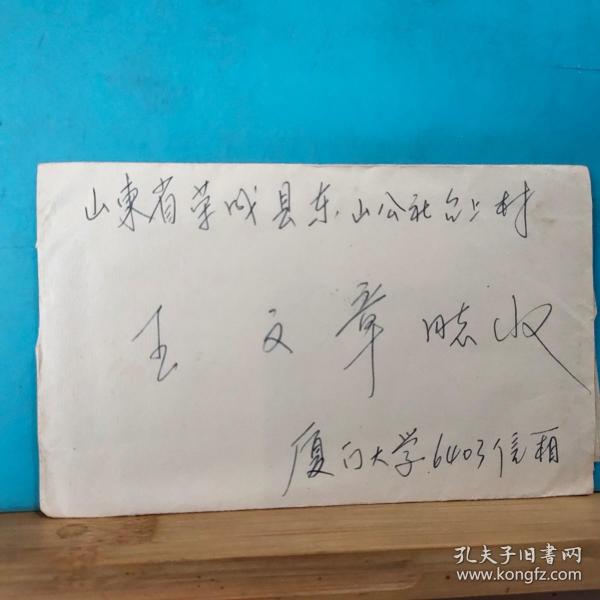 山東省荣成县东山公社台上村
王文章同志收
厦门大学6403信箱
孔夫子旧书网
www.kongfz.com